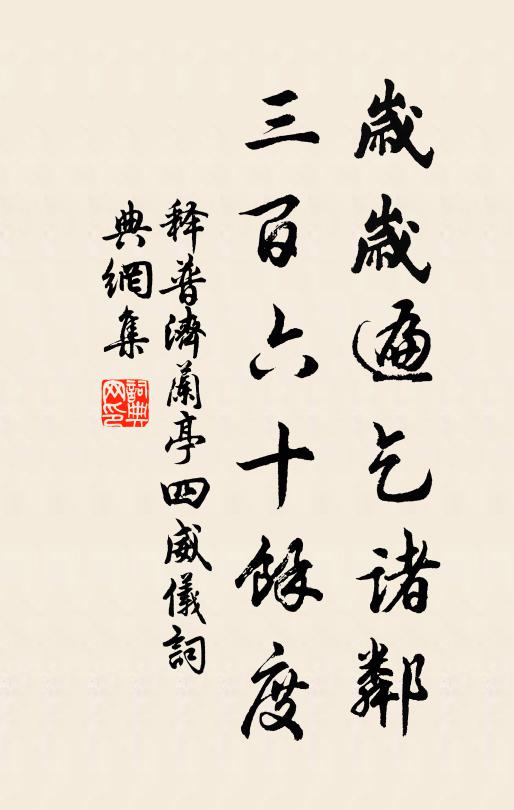 歲歲遍乞諸鄰
三百六十餘度
释普濟蘭亭四威儀詞
典網集
詞典
网印